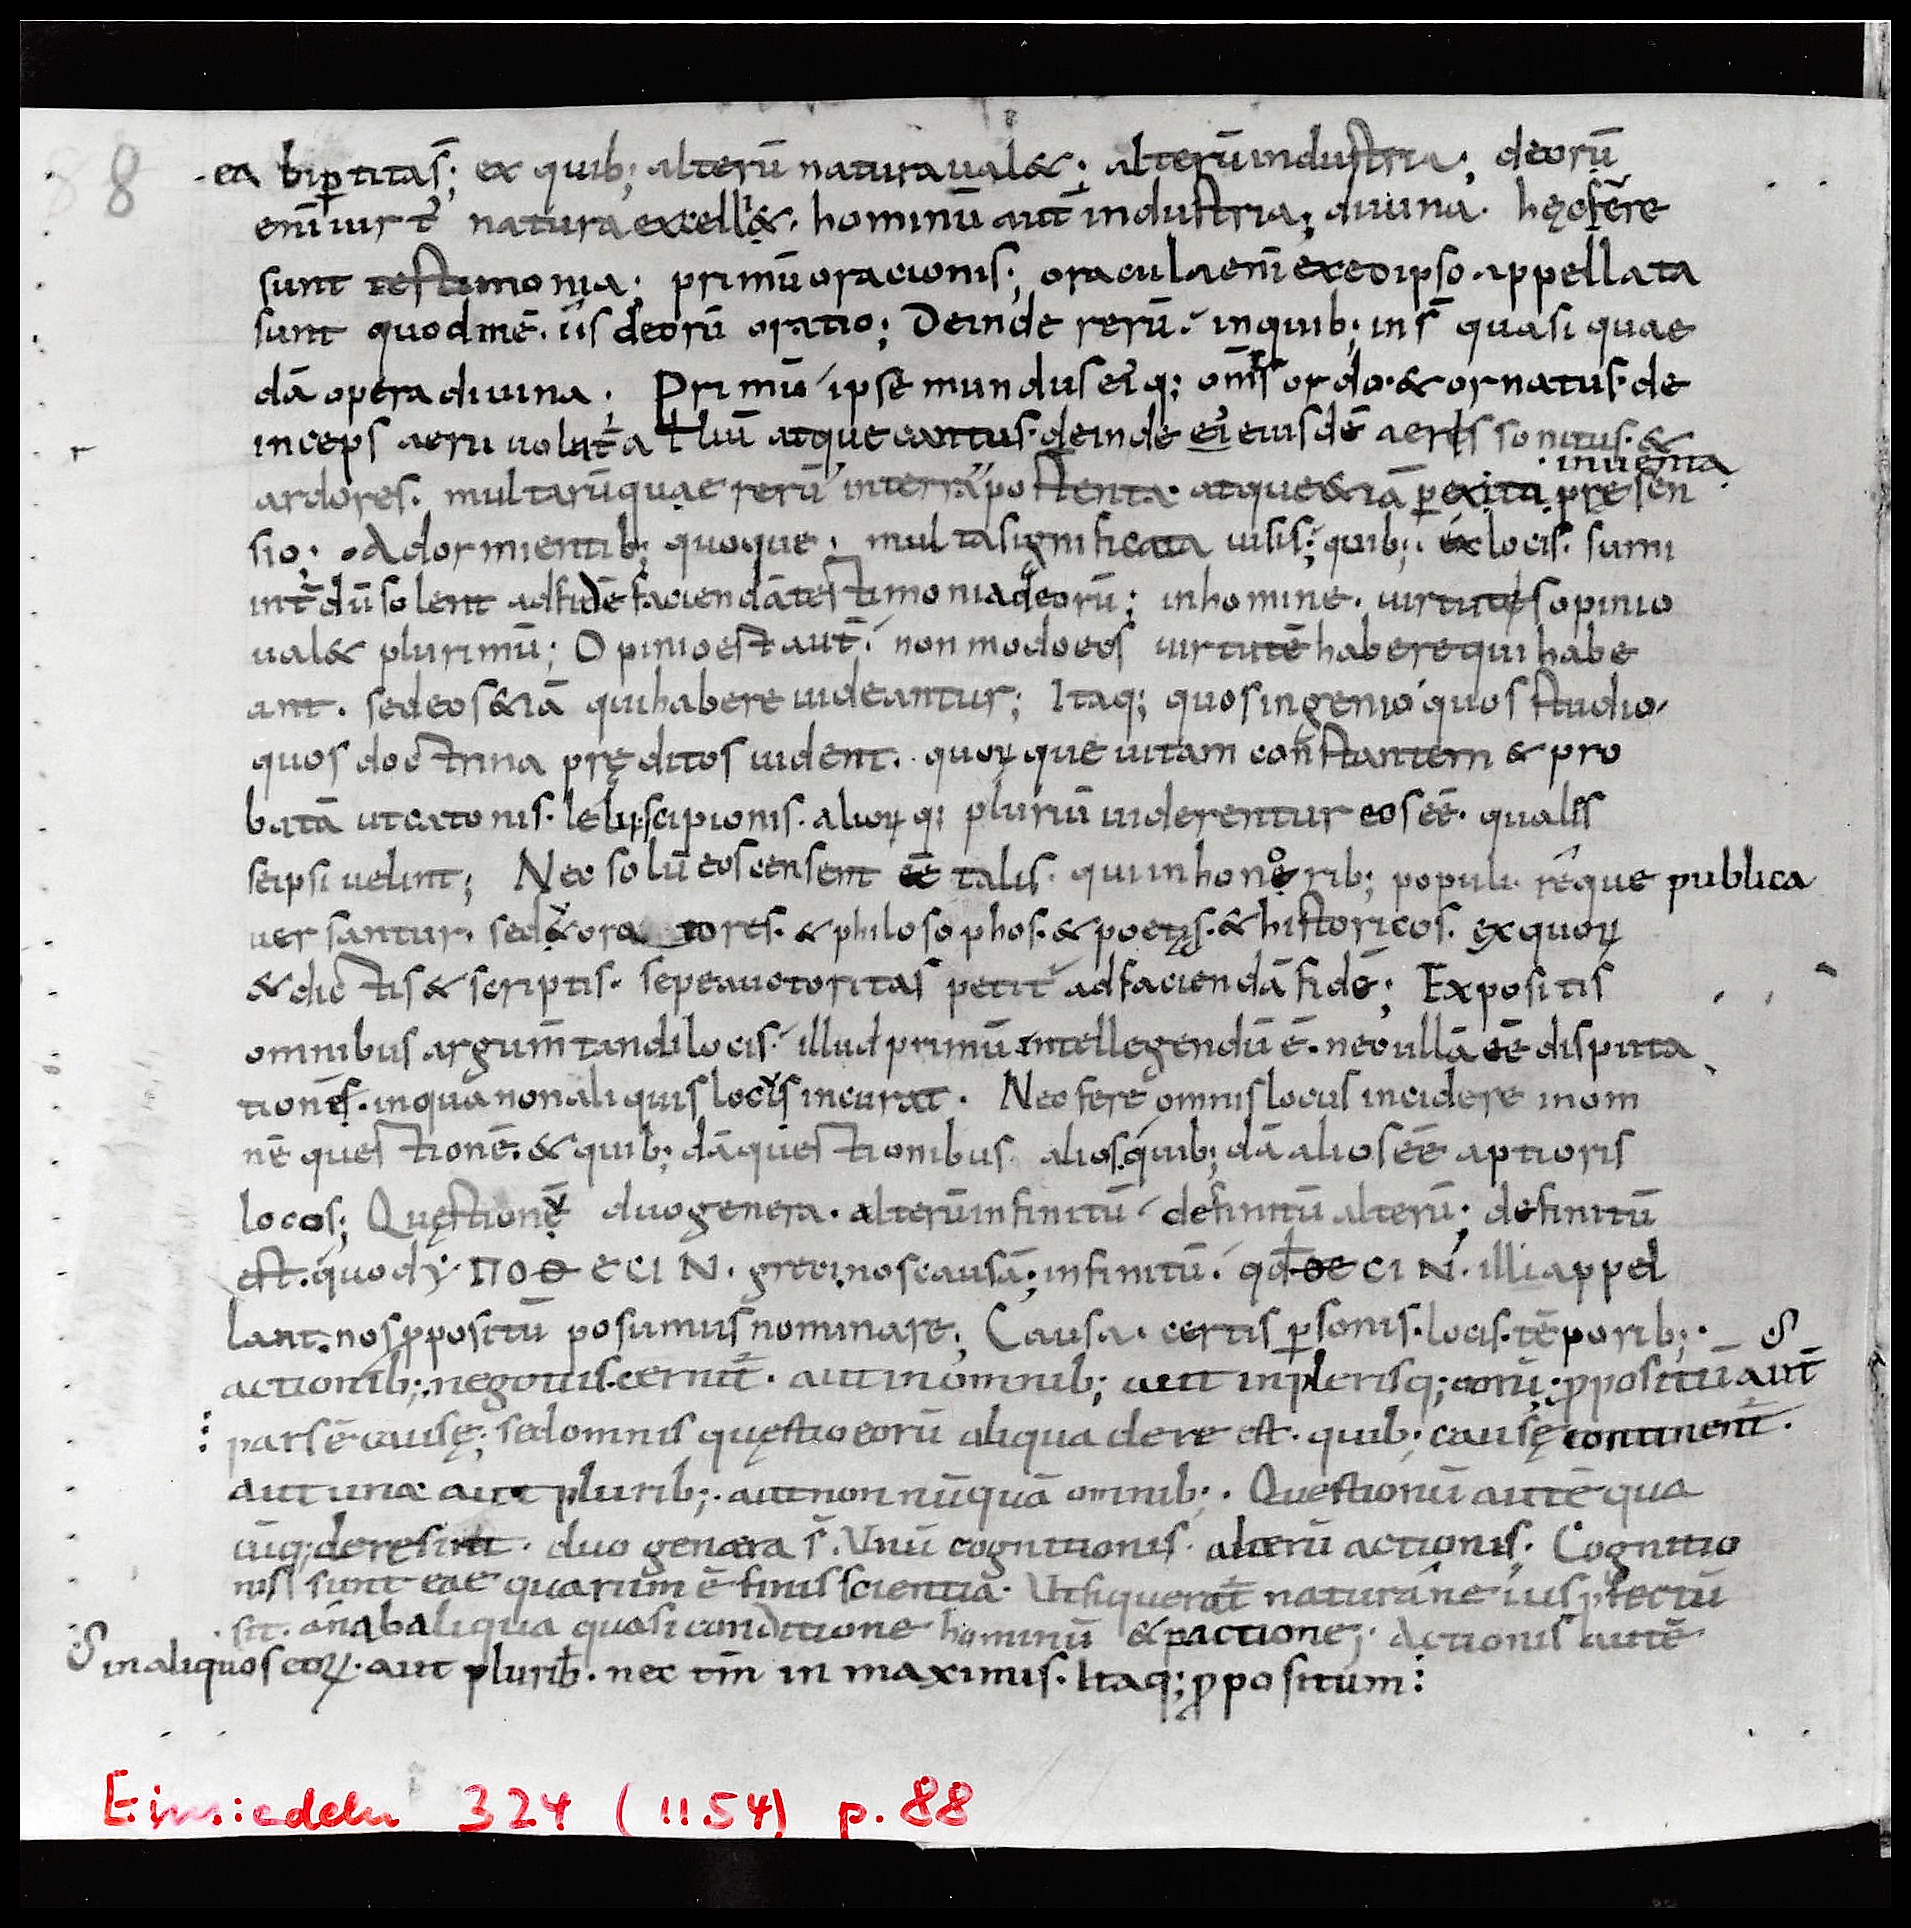 88
ea bip̲titas̄; ex quib; alterū natura ual&; alterū industria; deorū
enī uirt̄ natura excell&. hominū aut̄ industria; diuina. hęc fere
sunt testimonia; primū oracionis; oracula enī ex eo ipso appellata
sunt quod inē. iis deorū oratio; Deinde rerū. in quib; ins̄ quasi quae
dā opera diuina. Primū ipse mundus eiq; om̄s ordo. & ornatus. de
inceps aerii uolat̄ a t liū atque cantus. deinde ei eiusdē aeris sonitus. &
ardores. multarūquae rerū in terra postenta. atque &iā p̲ exita pręsen
inuenta
sio; A dormientib; quoque. multa significata uisis; quib;. ex locis. sumi
int̄dū solent ad fidē faciendā testimonia deorū; in homine. uirtutes opinio
ual& plurimū; Opinio est aut̄. non modo eos uirtutē habere qui habe
ant. sed eos &iā qui habere uideantur; Itaq; quos ingenio quos studio
quos doctrina pręditos uident. quoꝝ que uitam constantem & pro
batā ut catonis. lelii. scipionis. alioꝝ q; pluriū uiderentur eos eē. qualis
se ipsi uelint; Nec solū eos censent eē talis. qui in honoribꝫ populi. rēque publica
uersantur. sed & oratores. & philosophos. & poetas. & historicos. ex quoꝝ
& dictis & scriptis. sepe auctoritas petit̄ ad faciendā fidē; Expositis
omnibus argum̄tandi locis. illud primū intellegendū ē. nec ullā eē disputa
tionē. in quā non aliquis locus incurat. Nec fere omnis locus incidere in om
nē questionē. & quib; dā questionibus. alios. quib; dā alios eē aptioris
locos; Quęstionū duo genera. alterū infinitū. definitū alterū; definitū
est. quod γ ΠΟΘ ЄCIN. greci nos causā; infinitū. qđ ΘЄCIN. illi appel
lant. nos ꝓpositū posumus nominare; Causa. certis p̲sonis. locis. tēporib;. S
actionib;. negotiis. cernit̄. aut in omnib; aut in plerisq; eorū; ꝓpositū aut̄
pars ē causę; sed omnis quęstio eorū aliqua de re est. quib; causę continent̄.
aut una aut plurib;. aut non nūquā omnib;. Questionū autē qua
cūq; de re sint. duo genera s̄. Vnū cognitionis. alterū actionis. Cognitio
nis sunt eae quarum ē finis scientia. Vt si querat̄ naturāne ius ꝓfectū
sit. an ab aliqua quasi conditione hominū & pactione;. Actionis autē
S in aliquos eoꝝ. aut plurib̄. nec tm̄ in maximis. Itaq; ꝓpositum:
Einsiedeln 324 (1154) p. 88